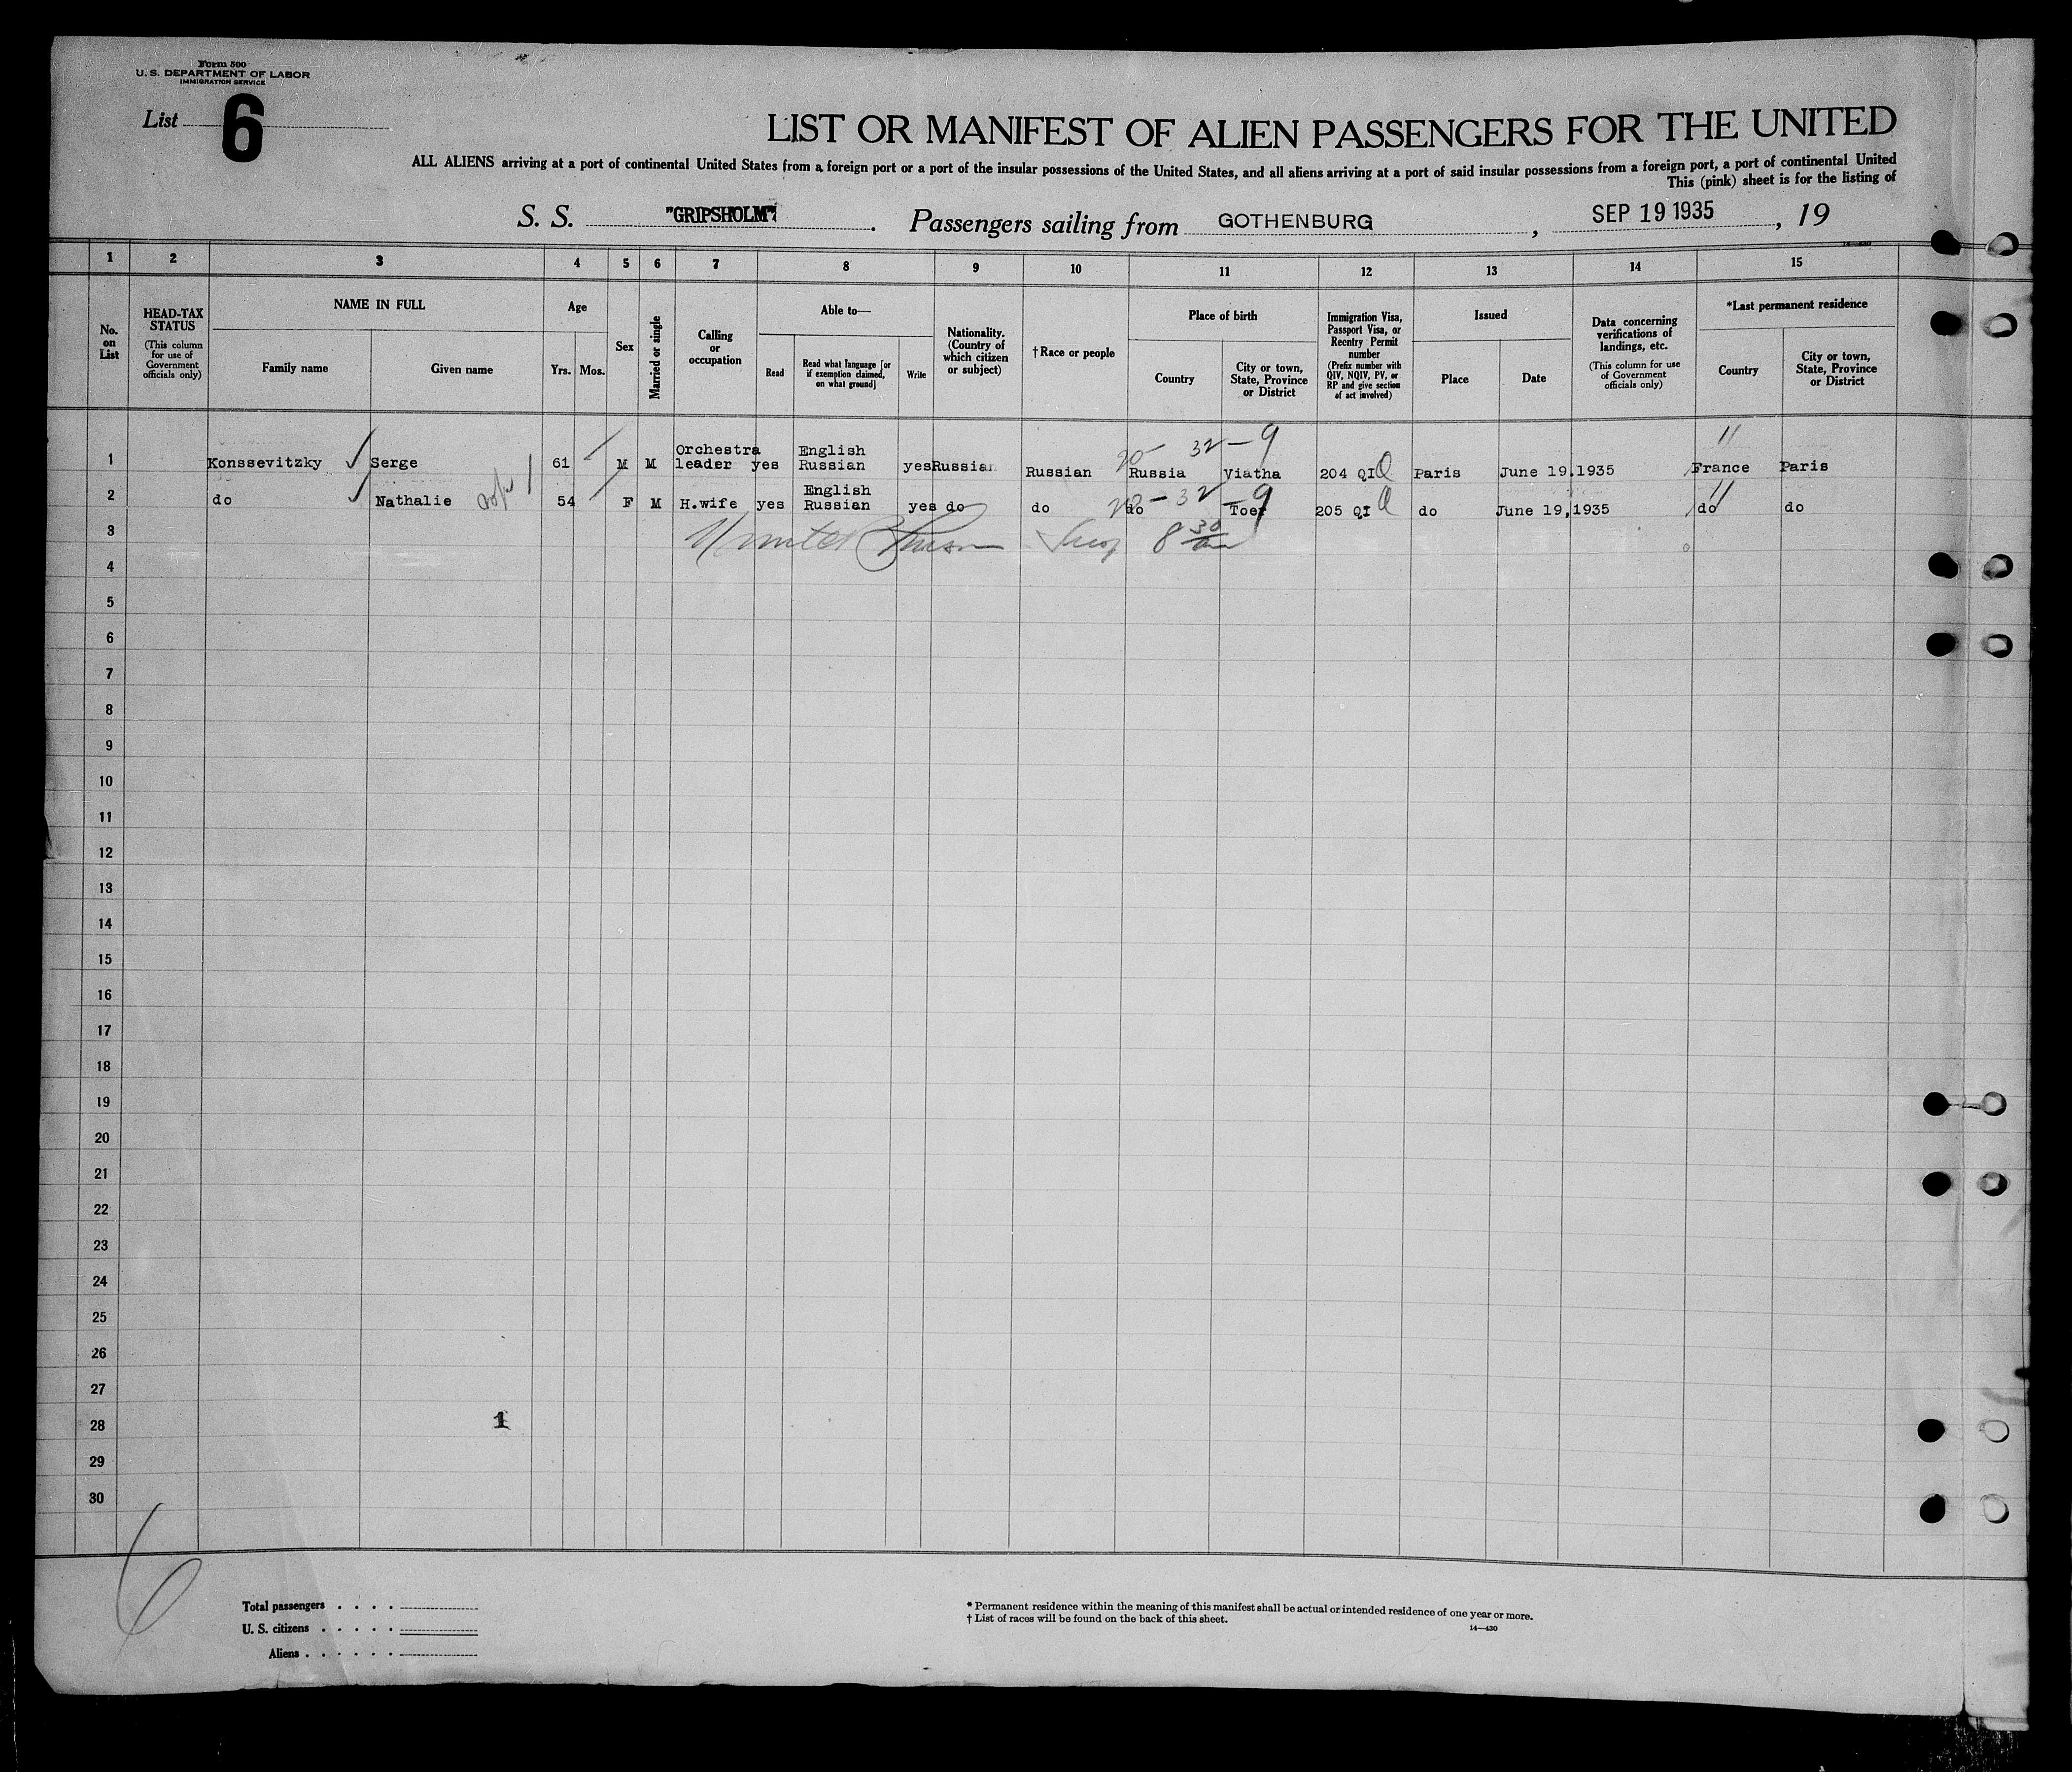 Form 500
U. S. DEPARTMENT OF LABOR
IMMIGRATION SERVICE
List 6
LIST OR MANIFEST OF ALIEN PASSENGERS FOR THE UNITED
ALL ALIENS arriving at a port of continental United States from a foreign port or a port of the insular possessions of the United States, and all aliens arriving at a port of said insular possessions from a foreign port, a port of continental United
This (pink) sheet is for the listing of
S. S. "GRIPSHOLM" . Passengers sailing from GOTHENBURG , SEP 19 1935 , 19
1 2 3 4 5 6 7 8 9 10 11 12 13 14 15
No. on List
HEAD-TAX STATUS
(This column for use of Government officials only)
NAME IN FULL
Family name
Given name
Age
Yrs. Mos.
Sex
Married or single
Calling or occupation
Able to—
Read
Read what language [or if exemption claimed, on what ground]
Write
Nationality. (Country of which citizen or subject)
† Race or people
Place of birth
Country
City or town, State, Province or District
Immigration Visa, Passport Visa, or Reentry Permit number
(Prefix number with QIV, NQIV, PV, or RP and give section of act involved)
Issued
Place
Date
Data concerning verifications of landings, etc.
(This column for use of Government officials only)
*Last permanent residence
Country
City or town, State, Province or District
20 - 32 - 9 11
1 Konssevitzky Serge 61 M M Orchestra leader yes English Russian yes Russian Russian Russia Viatha 204 QI Paris June 19,1935 France Paris
20 - 32 - 9 11
2 do Nathalie 54 F M H.wife yes English Russian yes do do do Toer 205 QI do June 19,1935 do do
3 8 30
4
5
6
7
8
9
10
11
12
13
14
15
16
17
18
19
20
21
22
23
24
25
26
27
28 1
29
30
6
Total passengers . . . .
U. S. citizens . . . . .
Aliens . . . . . .
* Permanent residence within the meaning of this manifest shall be actual or intended residence of one year or more.
† List of races will be found on the back of this sheet.
14—430